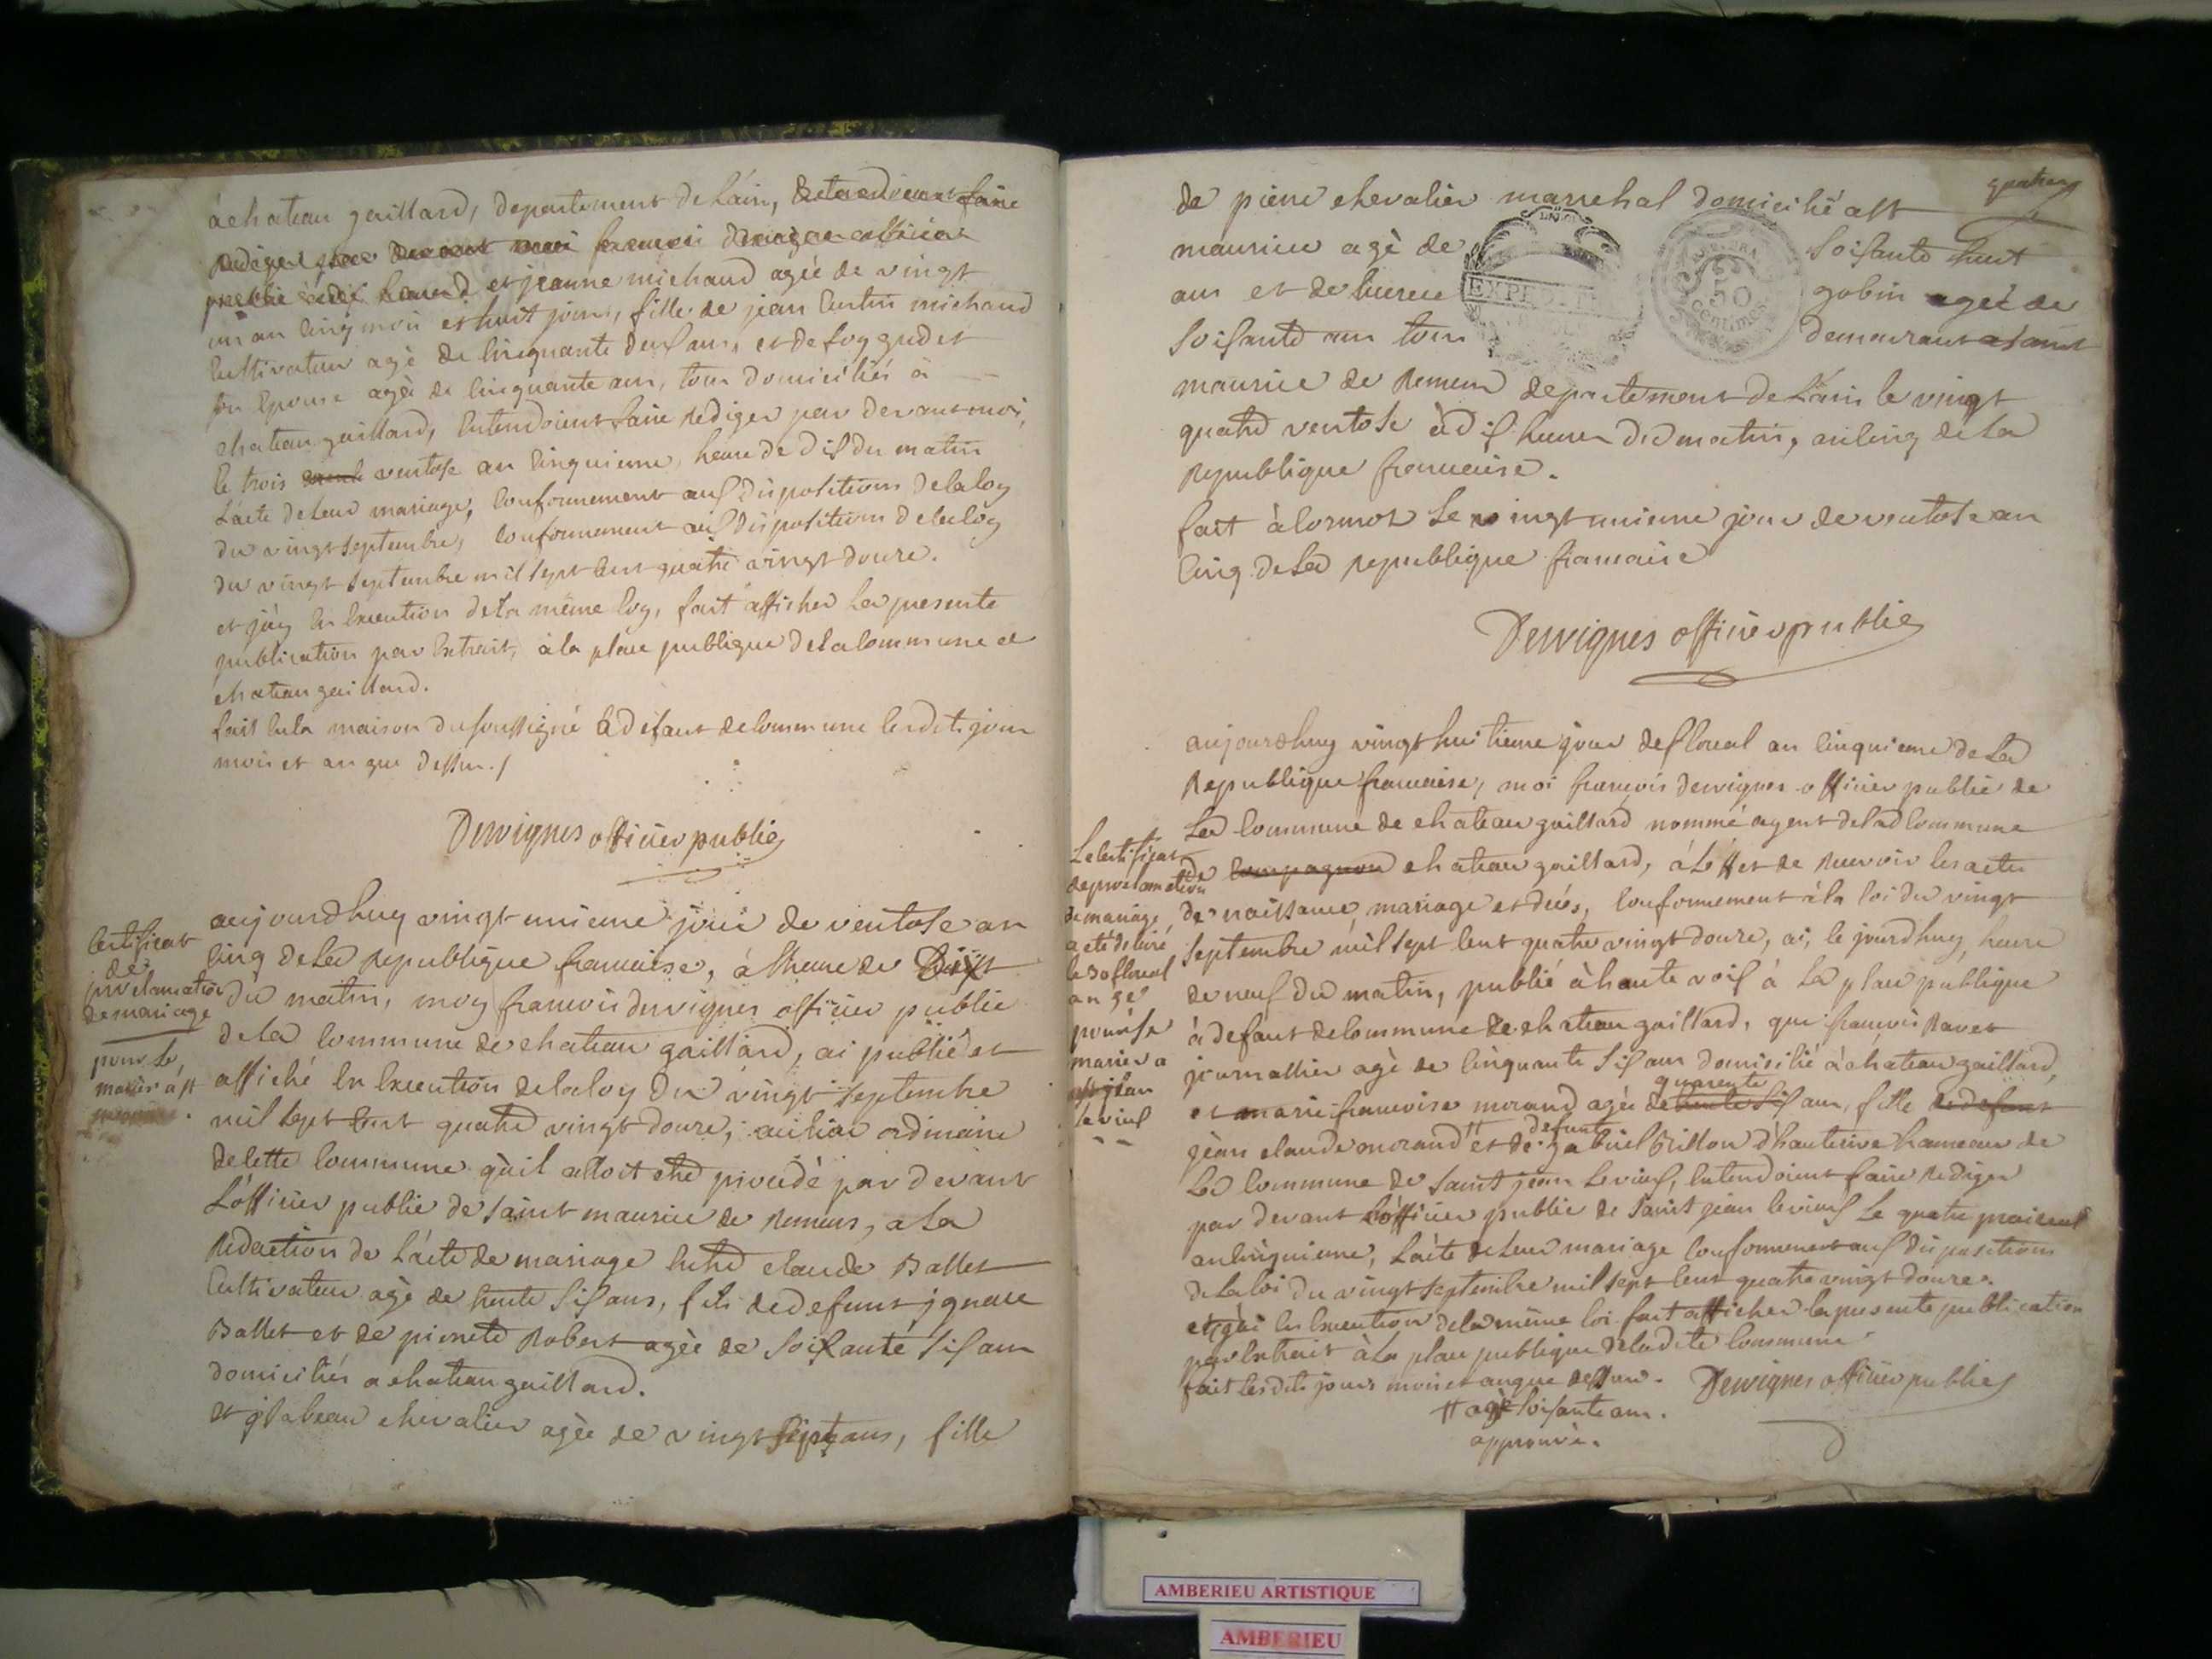 à chateau gaillard, departement de l'ain, entendoient faire
rediger par devant moi francois dervignes officier
public et jeanne michaud agée de vingt
un an cinq mois et huit jours, fille de jean michaud
cultivateur agé de cinquante deux ans, et de gudet
son epouse agée de cinquante ans, tous domiciliés à
chateau gaillard, entendoient faire rediger par devant moi,
le trois ventose an cinquieme, heure de dix du matin
l'acte de leur mariage, conformement aux dispositions de la loy
du vingt septembre, conformement aux dispositions de la loy
du vingt septembre mil sept cent quatre vingt douze.
et j'ay en execution de la même loy, fait afficher la presente
publication par extrait, à la place publique de la commune de
chateau gaillard.
fait en la maison du soussigné à defaut de commune lesdits jour
mois et an que dessus./
Dervignes officier public
certificat
de
proclamation
de mariage
pour se
marier à st
aujourdhuy vingt unieme jour de ventose an
cinq de la republique francaise, à l'heure de dix
du matin, moy francois dervignes officier public
de la commune de chateau gaillard, ai publié et
affiché en execution de la loy du vingt septembre
mil sept cent quatre vingt douze, au lieu ordinaire
de cette commune qu'il alloit etre procedé par devant
l'officier public de saint maurice de remens, a la
redaction de l'acte de mariage entre claude Ballet
cultivateur agé de trente six ans, fils de defunt ignace
Ballet et de pierrette Robert agée de soixante six ans
domiciliés a chateau gaillard.
et ysabeau chevalier agée de vingt sept ans, fille
de pierre chevalier marrehal domicilié a st
maurice agé de soixante huit
ans et de gobin agée de
soixante ans tous demeurant a saint
EXPED
50
Centimes
maurice de Remens departement de l'ain le vingt
quatre ventose à dix heures du matin, an cinq de la
Republique francaise.
fait à cormoz le vingt unieme jour de ventose an
cinq de la republique francaise
Dervignes officier public
Le certificat
de proclamation
de mariage
a eté delivré
le 30 floreal
an 5e
pour se
marier a
st jean
le vieux
aujourdhuy vingt huitieme jour de floreal an cinquieme de la
Republique francaise, moi francois dervignes officier public de
la commune de chateau gaillard nommé agent de lad commune
de compagnon chateau gaillard, à l'effet de recevoir les actes
de naissance, mariage et decés, conformement à la loi du vingt
septembre mil sept cent quatre vingt douze, ai, le jourdhuy, heure
de neuf du matin, publié à haute voix à la place publique
à defaut de commune de chateau gaillard, que francois Ravet
journallier agé de cinquante six ans domicilié à chateau gaillard,
quarente
et marie francoise morand agée de trente six ans, fille de defunt
defunte
jean claude morand # et de gabriel Billon d'hauterive hameau de
la commune de saint jean le vieux, entendoient faire rediger
par devant l'officier public de saint jean le vieux le quatre prairial
an cinquieme, l'acte de leur mariage conformement aux dispositions
de la loi du vingt septembre mil sept cent quatre vingt douze.
et j'ai en execution de la même loi fait afficher la presente publication
par extrait à la place publique de la dite commune
fait les dits jours mois et an que dessus. Dervignes officier public
# agé soixante ans.
approuvé.
AMBERIEU ARTISTIQUE
AMBERIEU